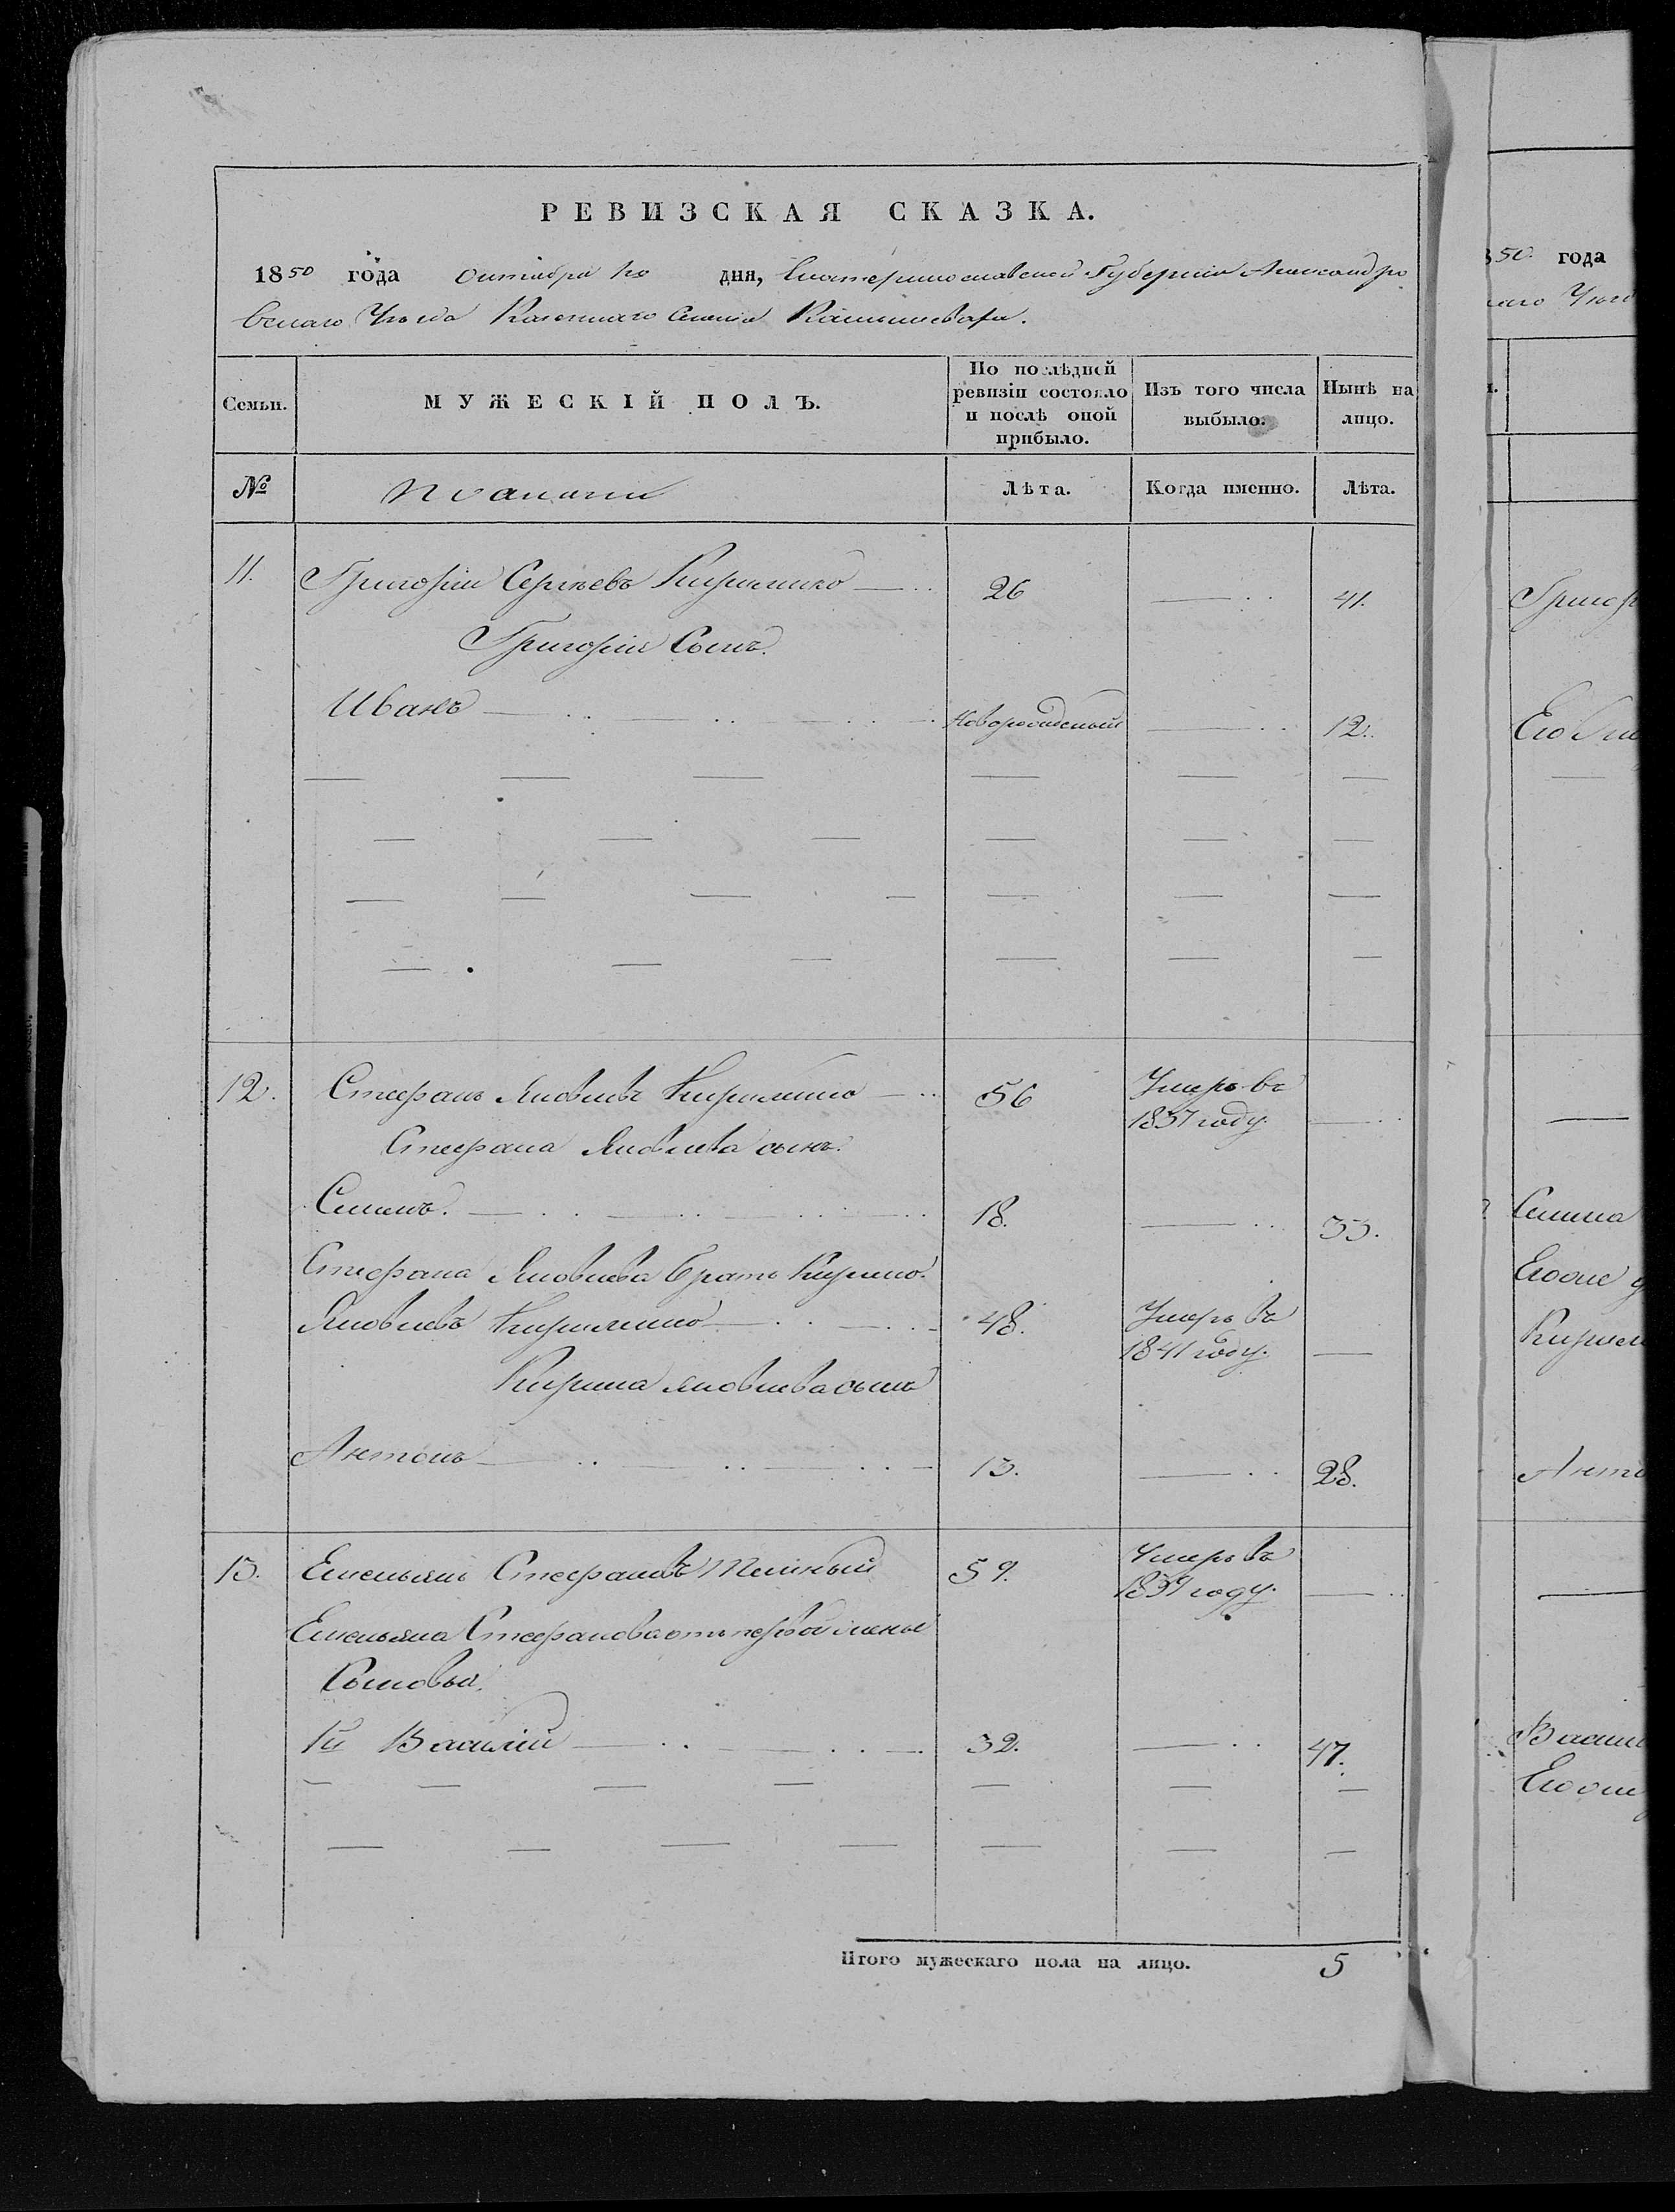 РЕВИЗСКАЯ СКАЗКА.
1850 года октября 1го дня, Екатеринославской Губернiи Александро
вскаго Уѣзда Казеннаго Селенiя
Семьи. МУЖЕСКIЙ ПОЛЪ. По послѣдней ревизiи состояло и послѣ оной прибыло. Изъ того числа выбыло. Нынѣ на лицо.
№ Лѣта. Когда именно. Лѣта.
11. Григорiй Сергѣевъ Кириленко 26 41.
Григорiя Сынъ.
Иванъ Новорожденый 12.
12. Стефанъ Яковлевъ Кириленко 56 Умеръ въ 1837 году.
Стефана Яковлева сынъ.
Семенъ. 18. 33.
Стефана Яковлева братъ Кирило.
Яковлевъ Кириленко 48. Умеръ въ 1841 году.
Кирила Яковлева сынъ
Антонъ 13. 28.
13. Емельянъ Стефановъ 59. Умеръ въ 1839 году.
Емельяна Стефанова отъ первой жены
Сыновья.
1й Василiй 32. 47.
Итого мужескаго пола на лицо. 5
850 года
Григор
Семена
Кирил
Анто
Васил